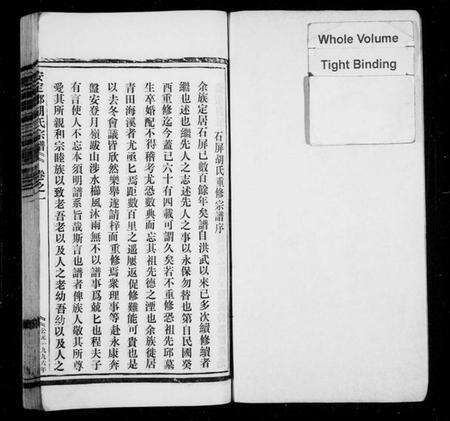 石屏胡氏重修宗譜序
余族定居石屏已數百餘年矣譜自洪武以來已多次續修續者
繼也述也繼先人之志述先人之事以永保勿替也第自民國癸
酉重修迄今蓋已六十有四載可謂久矣若不重修恐祖先邱墓
生卒婚配不得稽考尤恐數典而忘其祖先德之湮也余族徙居
青田海溪者尤亟亟焉距數百里之遥屢返促修雖能可貴也是
以去冬會議皆欣然樂舉遂請梓而重修焉衆理事等赴永康奔
盤安登月嶺跋山涉水櫛風沐雨無不以譜事爲兢兢也程夫子
有言使人不忘本須明譜系旨哉斯言也譜者俾族人敬其所尊
愛其所親和宗睦族以致老吾老以及人之老幼吾幼以及人之
安定郡胡氏宗譜 卷之一
公元一九九六年
Whole Volume
Tight Binding